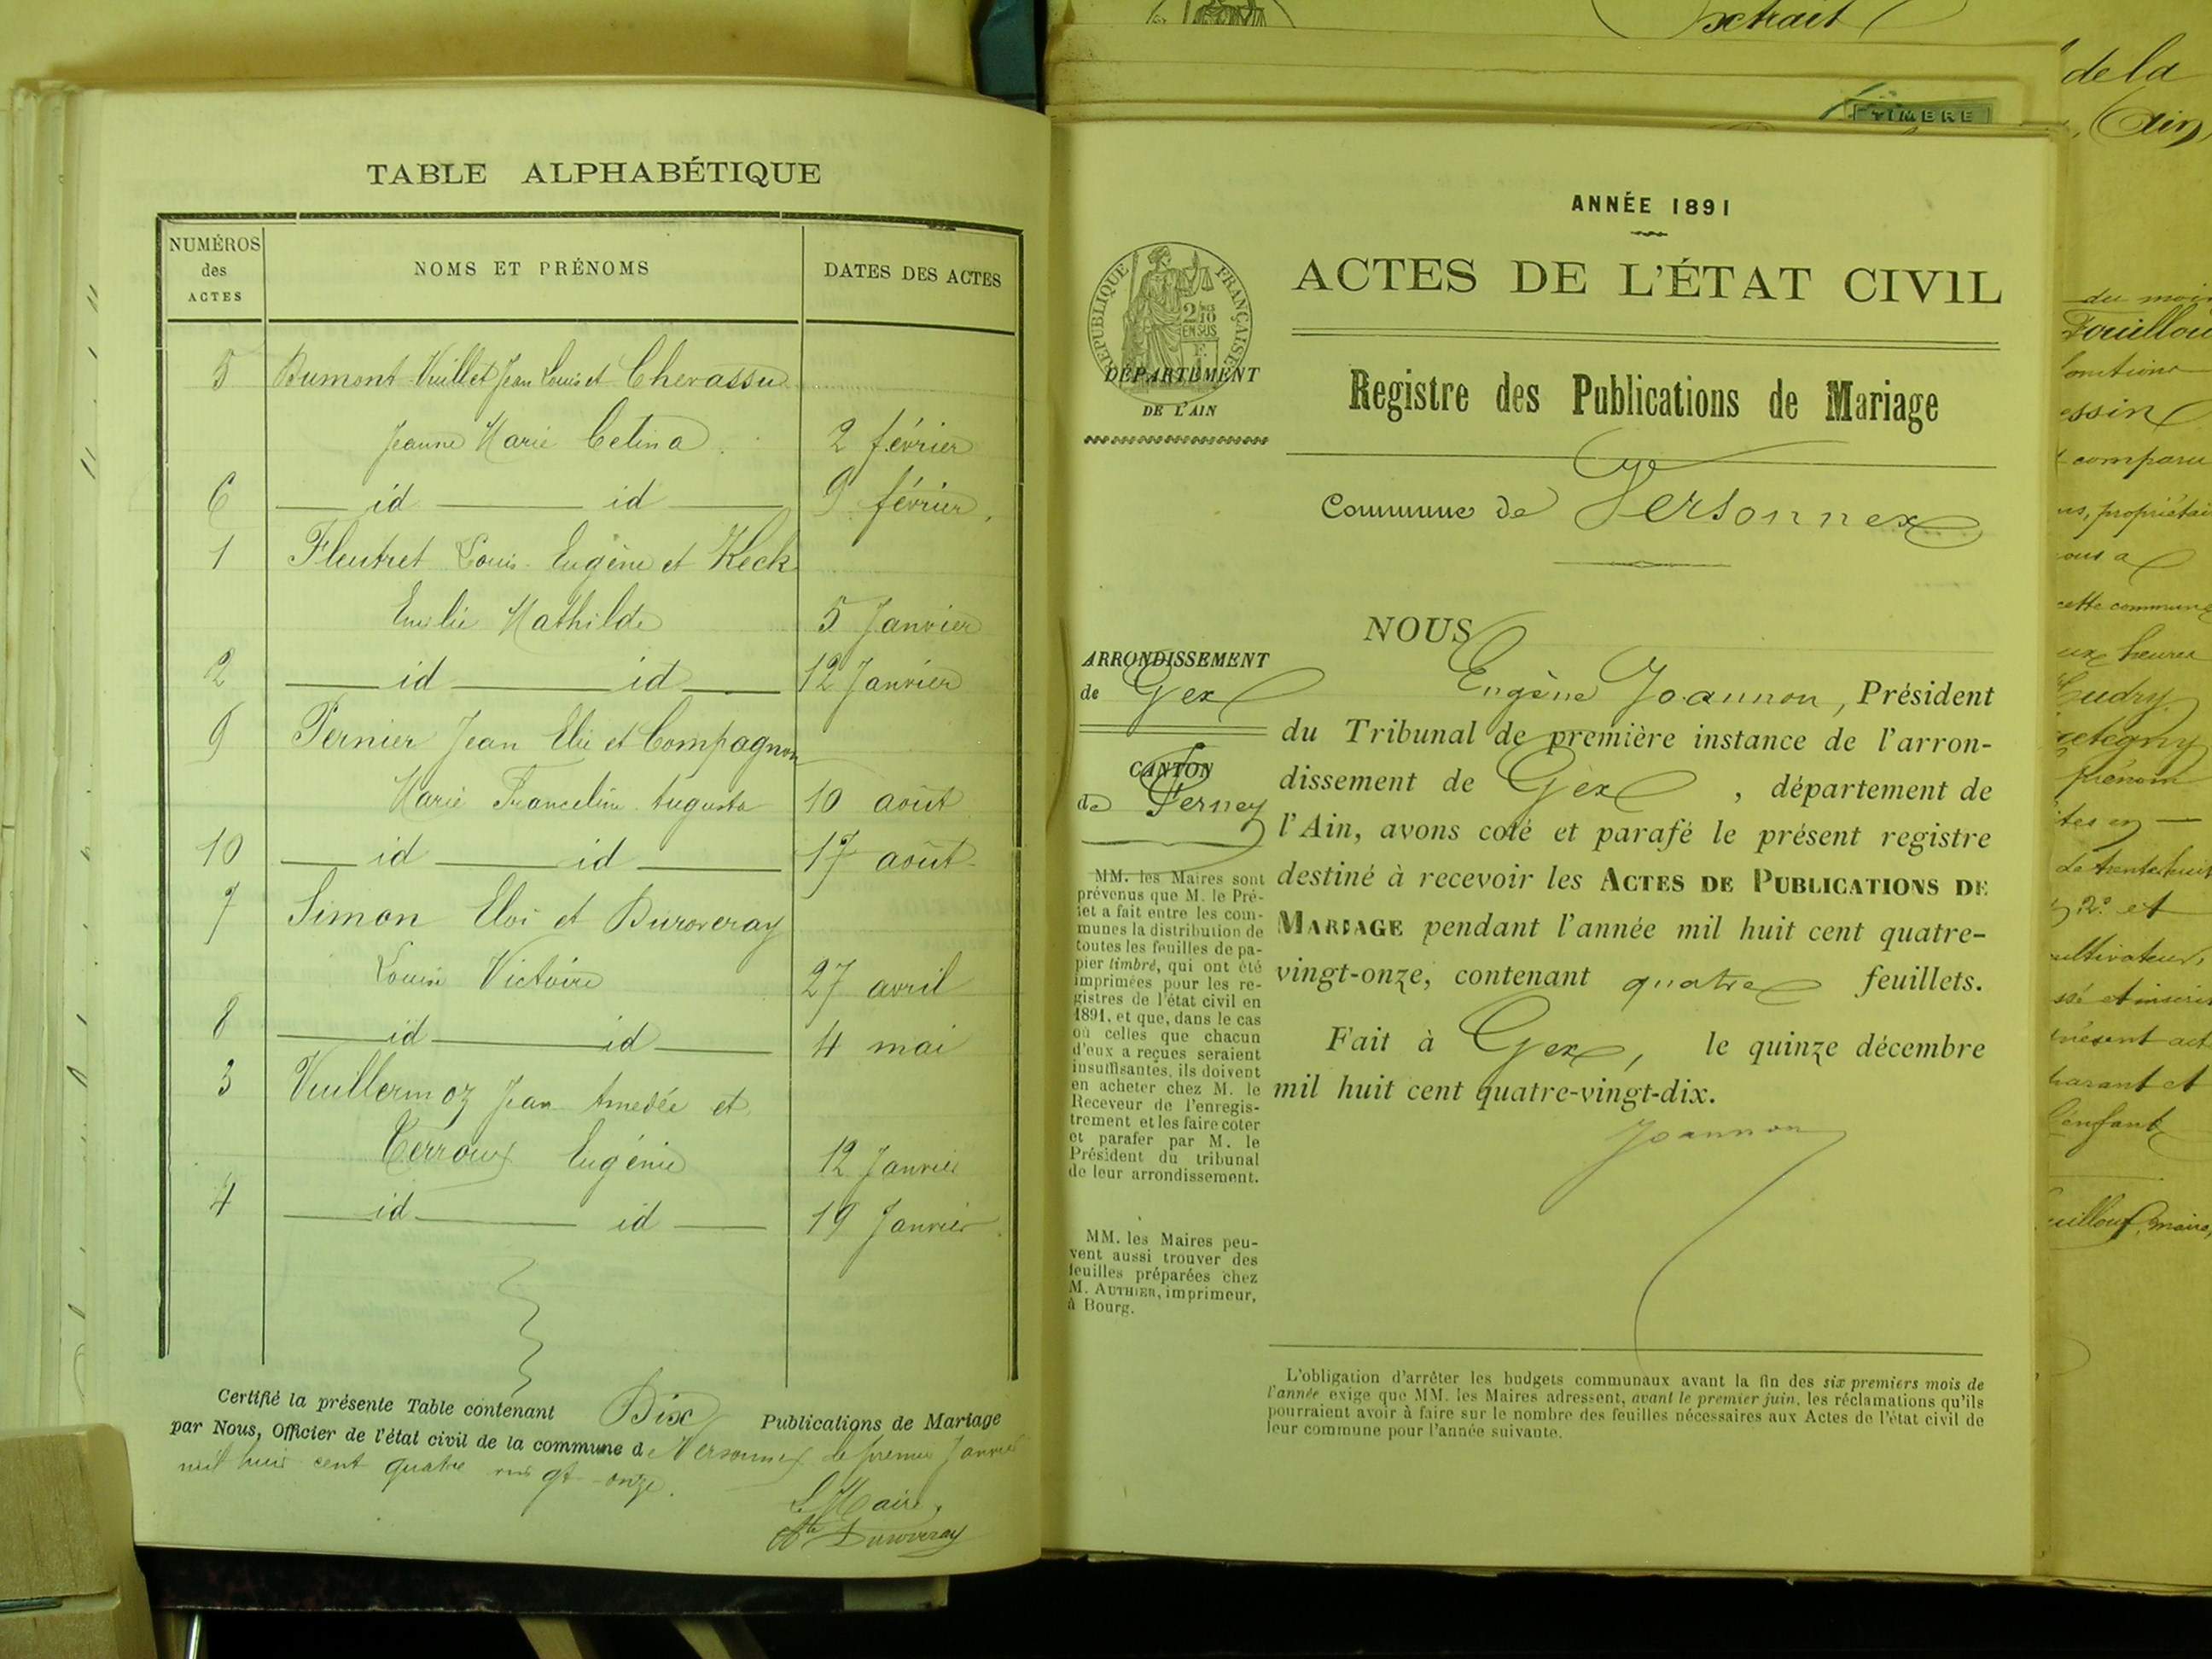 TABLE ALPHABÉTIQUE
NUMÉROS des ACTES NOMS ET PRÉNOMS DATES DES ACTES
5 Dumont-Vuillet Jean Louis et Chevassu
Jeanne Marie Celina 2 février
6 id id 9 février
1 Fleutret Louis Eugène et Keck
Emilie Mathilde 5 Janvier
2 id id 12 Janvier
9 Pernier Jean Elie et Compagnon
Marie Franceline Augusta 10 août
10 id id 17 août
7 Simon Eloi et Duroveray
Louise Victoire 27 avril
8 id id 4 mai
3 Vuillermoz Jean Amedée et
Terroux Eugénie 12 Janvier
4 id id 19 Janvier
Certifié la présente Table contenant Dix Publications de Mariage
par Nous, Officier de l'état civil de la commune de Versonnex le premier Janvier
mil huit cent quatre vingt-onze.
Le Maire,
Duroveray
Extrait
TIMBRE
ANNÉE 1891
RÉPUBLIQUE FRANÇAISE
2/10 EN SUS
ACTES DE L'ÉTAT CIVIL
DÉPARTEMENT
DE L'AIN
Registre des Publications de Mariage
Commune de Versonnex
ARRONDISSEMENT
de Gex
CANTON
de Ferney
MM. les Maires sont
prévenus que M. le Pré-
fet a fait entre les com-
munes la distribution de
toutes les feuilles de pa-
pier timbré, qui ont été
imprimées pour les re-
gistres de l'état civil en
1891, et que, dans le cas
où celles que chacun
d'eux a reçues seraient
insuffisantes, ils doivent
en acheter chez M. le
Receveur de l'enregis-
trement et les faire coter
et parafer par M. le
Président du tribunal
de leur arrondissement.
MM. les Maires peu-
vent aussi trouver des
feuilles préparées chez
M. AUTHIER, imprimeur,
à Bourg.
NOUS
Eugène Joannon, Président
du Tribunal de première instance de l'arron-
dissement de Gex, département de
l'Ain, avons coté et parafé le présent registre
destiné à recevoir les ACTES DE PUBLICATIONS DE
MARIAGE pendant l'année mil huit cent quatre-
vingt-onze, contenant quatre feuillets.
Fait à Gex, le quinze décembre
mil huit cent quatre-vingt-dix.
Joannon
L'obligation d'arrêter les budgets communaux avant la fin des six premiers mois de
l'année exige que MM. les Maires adressent, avant le premier juin, les réclamations qu'ils
pourraient avoir à faire sur le nombre des feuilles nécessaires aux Actes de l'état civil de
leur commune pour l'année suivante.
de la
Ain,
du mois
comparu
propriétai
cette commune
heures
prénom
de trente huit
2° et
cultivateur,
présent act
parant et
l'enfant
maire,